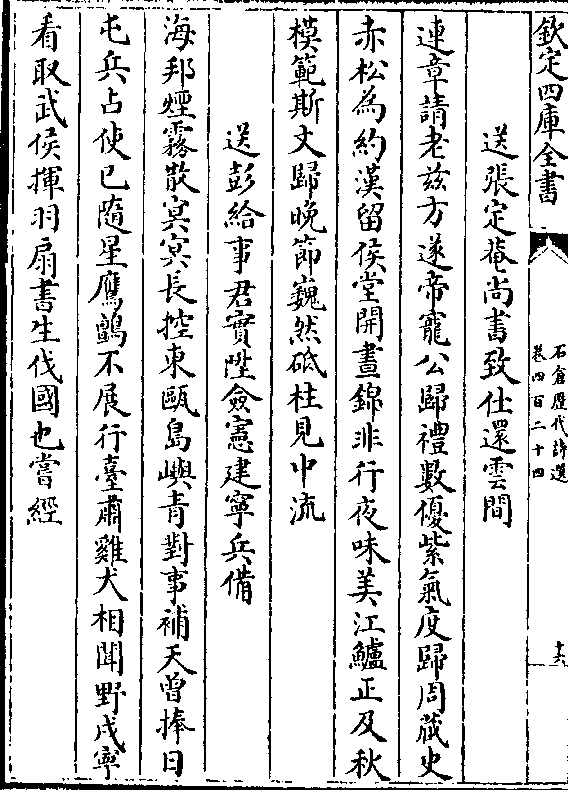 欽定四庫全書
石倉歷代詩選
卷四百二十四
十六
送張定菴尚書致仕還雲間
連章請老兹方遂帝寵公歸禮數優紫氣度歸周藏史
赤松為約漢留侯堂開晝錦非行夜味美江鱸正及秋
模範斯文歸晚節巍然砥柱見中流
送彭給事君實陞僉憲建寧兵備
海邦煙霧散冥冥長控東甌島嶼青對事補天曾捧日
屯兵占使已隨星鷹鸇不展行臺肅雞犬相聞野戍寧
看取武侯揮羽扇書生伐國也嘗經